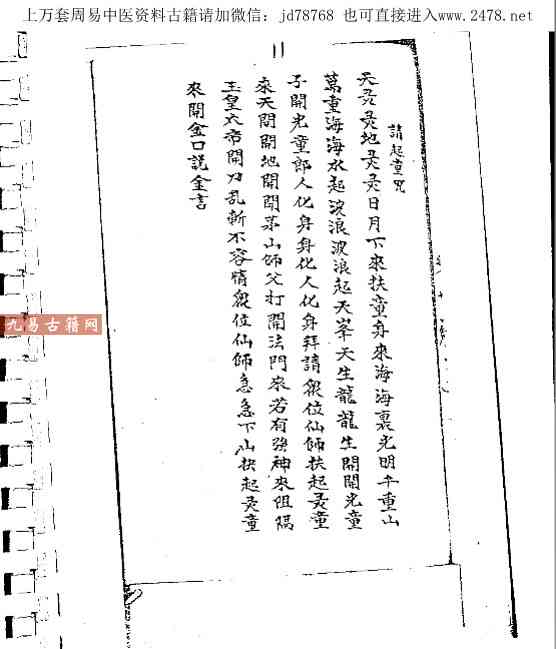 上万套周易中医资料古籍请加微信：jd78768 也可直接进入www.2478.net
請起童咒
天灵灵地灵灵日月下來扶童身來海海裏光明千重山
萬重海海水起波浪波浪起天峯天生龍龍生開開光童
子開光童郎人化身身化人化身拜請眾位仙師扶起灵童
來天開開地開開茅山師父打開法門來若有強神來阻隔
玉皇大帝開刀乱斬不容情眾位仙師急急下山扶起灵童
來開金口說金言
九易古籍网